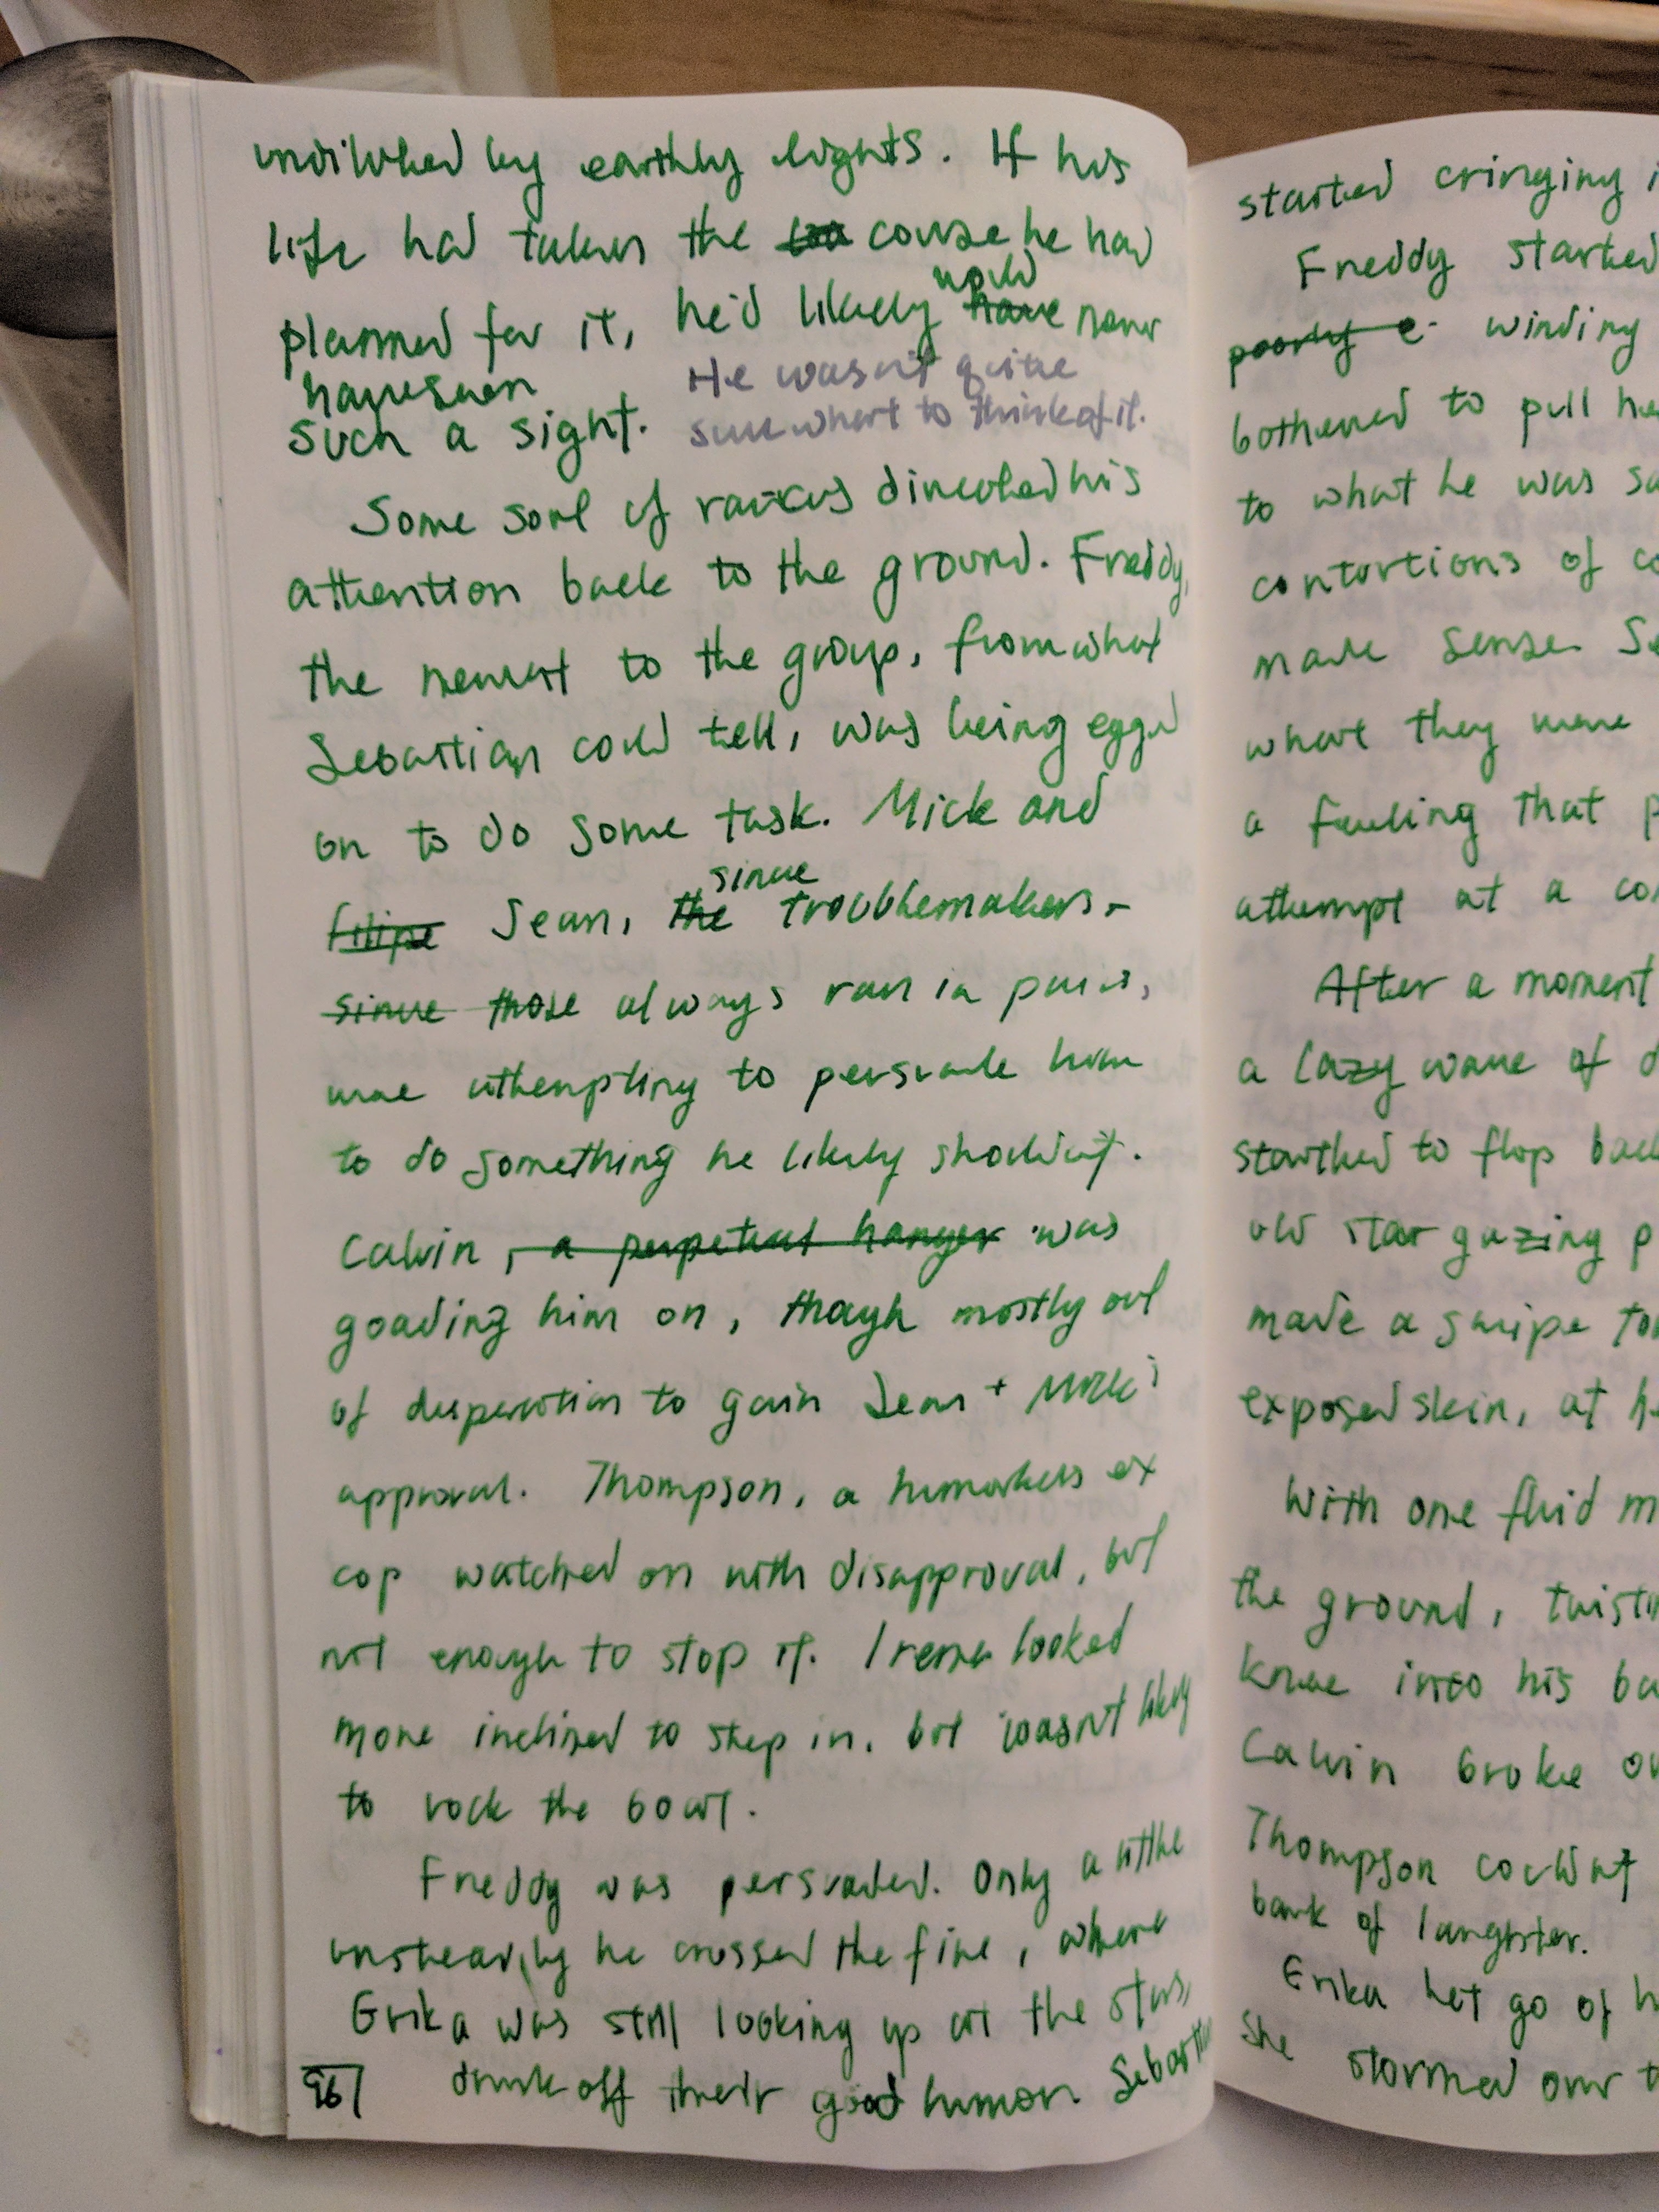 undiluted by earthly lights. If his
life had taken the course he had
planned for it, he'd likely would never
have seen
such a sight. He wasn't quite
sure what to think of it.
Some sort of raucus directed his
attention back to the ground. Freddy,
the nearest to the group, from what
Sebastian could tell, was being egged
on to do some task. Mick and
filipe Jean, the since troublemakers
since those always ran in pairs,
were attempting to persuade him
to do something he likely shouldn't.
Calvin, a perpetual hanger was
goading him on, though mostly out
of desperation to gain Jean + Mick's
approval. Thompson, a humorless ex
cop watched on with disapproval, but
not enough to stop it. Irena looked
more inclined to step in, but wasn't likely
to rock the boat.
Freddy was persuaded. Only a little
unsteadily he crossed the fire, where
Erika was still looking up at the stars,
drunk off their good humor. Sebastian
96
started cringing
Freddy started
poorly e- winding
bothered to pull
to what he was
contortions of
make sense
what they were
a feeling that
attempt at a
After a moment
a lazy wave of
started to flop
old star gazing
made a swipe
exposed skin, at
With one fluid
the ground,
knee into his
Calvin broke
Thompson couldn't
bark of laughter.
Erika let go of
She stormed over